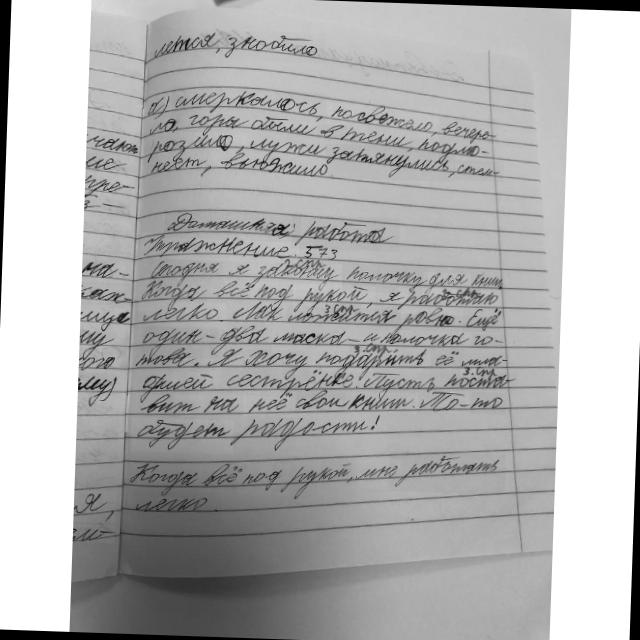 лется, знобило
d) смеркалось, посвежело, вечере-
ло, горы были в тени, подмо-
розило, лужи затянулись, стем-
неет, вьюжило
чают
ие
пре-
Домашняя работа
Упражнение 573
Сегодня я закончу полочку для книг.
Когда всё под рукой, я работаю
легко. Лак ложится ровно. Ещё
один-два мазка – и полочка го-
това. Я хочу подарить её мла-
дшей сестрёнке. Пусть поста-
вит на неё свои книги. То-то
будет радости!
3.стр.
3.стр.
3.стр.
на-
му)
Когда всё под рукой, мне работать
легко.
я,